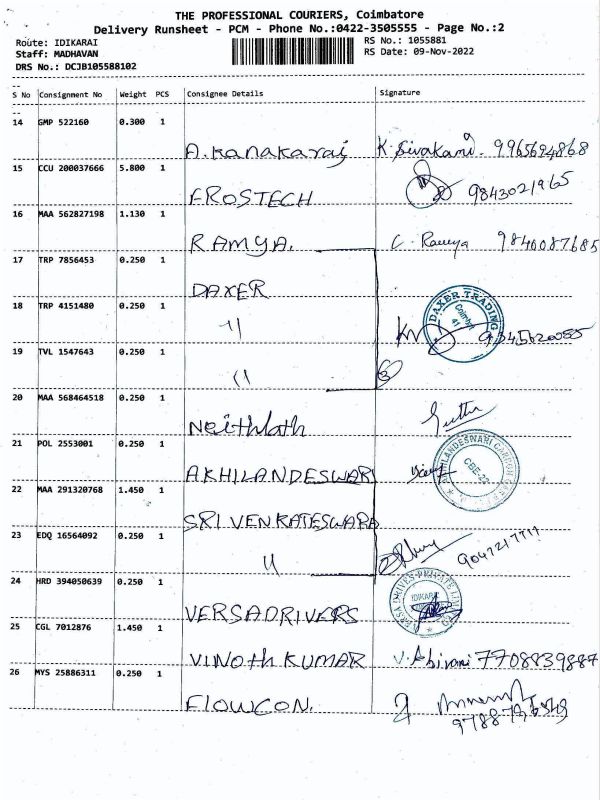 THE PROFESSIONAL COURIERS, Coimbatore
Delivery Runsheet - PCM - Phone No.:0422-3505555 - Page No.:2
Route: IDIKARAI
RS No.: 1055881
Staff: MADHAVAN
RS Date: 09-Nov-2022
DRS No.: DCJB105588102
S No Consignment No Weight PCS Consignee Details Signature
14 GMP 522160 0.300 1
A.Kanakaraj K. Sivakami. 9965694868
15 CCU 200037666 5.800 1
FROSTECH 9843021965
16 MAA 562827198 1.130 1
RAMYA. C. Ramya 9840087685
17 TRP 7856453 0.250 1
DAXER
18 TRP 4151480 0.250 1
DAXER TRADING
19 TVL 1547643 0.250 1
20 MAA 568464518 0.250 1
21 POL 2553001 0.250 1
AKHILANDESWARI
CBE-22
22 MAA 291320768 1.450 1
SRI VENKATESWARA
23 EDQ 16564092 0.250 1
24 HRD 394050639 0.250 1
IDIKARI
VERSADRIVERS
25 CGL 7012876 1.450 1
VINOTH KUMAR V. Abirami 7708839887
26 MYS 25886311 0.250 1
FLOWCON.